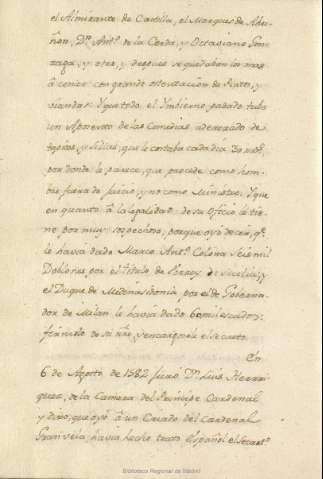 el Almirante de Castilla, el Marques de Ade-
ñon, Dn. Antº. de la Cerda, y Octaviano Gon-
zaga, y otros, y despues se quedaban los mas
à cenar con grande ostentacion de Platos, y
viandas: Y que todo el Ymbierno pasado tubo
un Aposento de las Comedias, aderezado de
tapices, y Sillas, que le costaba cada dia 30 rs.
por donde le parece, que procede como hom-
bre fuera de juicio, y no como Ministro: Y que
en quanto à la legalidad de su Oficio le tie-
ne por muy sospechoso, porque oyo decir, qe.
le havia dado Marco Antº. Colona Seis mil
Doblones por el titulo de Virrey de Sicilia; y
el Duque de Medinasidonia por el de Goberna-
dor de Milan le havia dado 6 mil escudos:
firmólo de su nre, y encargosele el secreto.
En
6 de Agosto de 1582 juró Dn. Luis Henrri-
quez, de la Camara del Principe Cardenal
y dixo, que oyó à un Criado del Cardenal
Granvela, havia hecho trato Español el Secretº
Biblioteca Regional de Madrid